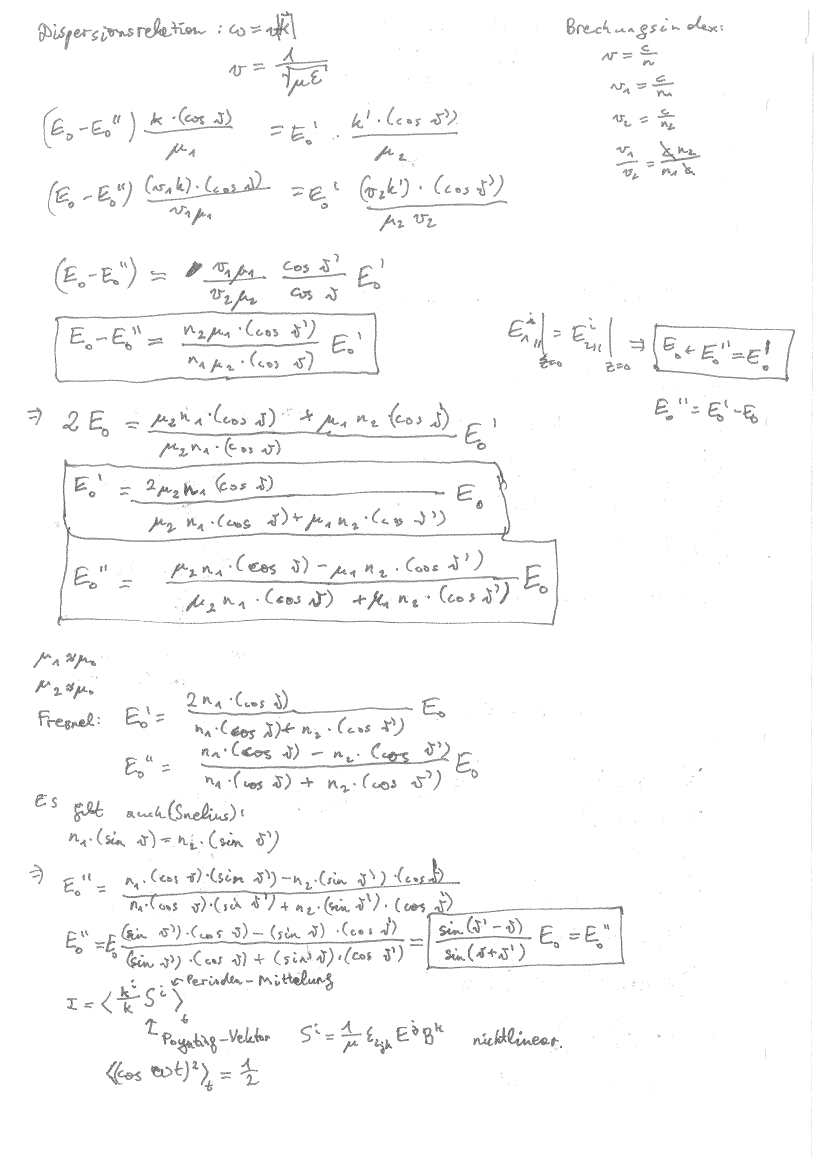 Dispersionsrelation: ω = v|k⃗|
v = 1/√(με)
Brechungsindex:
v = c/n
v₁ = c/n₁
v₂ = c/n₂
v₁/v₂ = c n₂/(n₁ c)
(E₀ - E₀'') k·(cos ϑ)/μ₁ = E₀' · k'·(cos ϑ')/μ₂
(E₀ - E₀'') (v₁k)·(cos ϑ)/(v₁μ₁) = E₀' (v₂k')·(cos ϑ')/(μ₂v₂)
(E₀ - E₀'') = v₁μ₁/(v₂μ₂) cos ϑ'/cos ϑ E₀'
E₀ - E₀'' = n₂μ₁·(cos ϑ')/(n₁μ₂·(cos ϑ)) E₀'
E₁∥ⁱ|z=0 = E₂∥ⁱ|z=0 ⇒ E₀ + E₀'' = E₀'
E₀'' = E₀' - E₀
⇒ 2E₀ = (μ₂n₁·(cos ϑ) + μ₁n₂(cos ϑ'))/(μ₂n₁·(cos ϑ)) E₀'
E₀' = 2μ₂n₁(cos ϑ)/(μ₂n₁·(cos ϑ) + μ₁n₂·(cos ϑ')) E₀
E₀'' = (μ₂n₁·(cos ϑ) - μ₁n₂·(cos ϑ'))/(μ₂n₁·(cos ϑ) + μ₁n₂·(cos ϑ')) E₀
μ₁ ≈ μ₀
μ₂ ≈ μ₀
Fresnel: E₀' = 2n₁·(cos ϑ)/(n₁·(cos ϑ) + n₂·(cos ϑ')) E₀
E₀'' = (n₁·(cos ϑ) - n₂·(cos ϑ'))/(n₁·(cos ϑ) + n₂·(cos ϑ')) E₀
Es gilt auch (Snelius):
n₁·(sin ϑ) = n₂·(sin ϑ')
⇒ E₀'' = (n₁·(cos ϑ)·(sin ϑ') - n₂·(sin ϑ')·(cos ϑ'))/(n₁·(cos ϑ)·(sin ϑ') + n₂·(sin ϑ')·(cos ϑ'))
E₀'' = E₀ ((sin ϑ')·(cos ϑ) - (sin ϑ)·(cos ϑ'))/((sin ϑ')·(cos ϑ) + (sin ϑ)·(cos ϑ')) = sin(ϑ' - ϑ)/sin(ϑ + ϑ') E₀ = E₀''
I = ⟨kⁱ/k Sⁱ⟩ₜ ← Perioden-Mittelung
↑ Poynting-Vektor Sⁱ = 1/μ εᵢⱼₖ Eʲ Bᵏ nichtlinear.
⟨(cos ωt)²⟩ₜ = 1/2